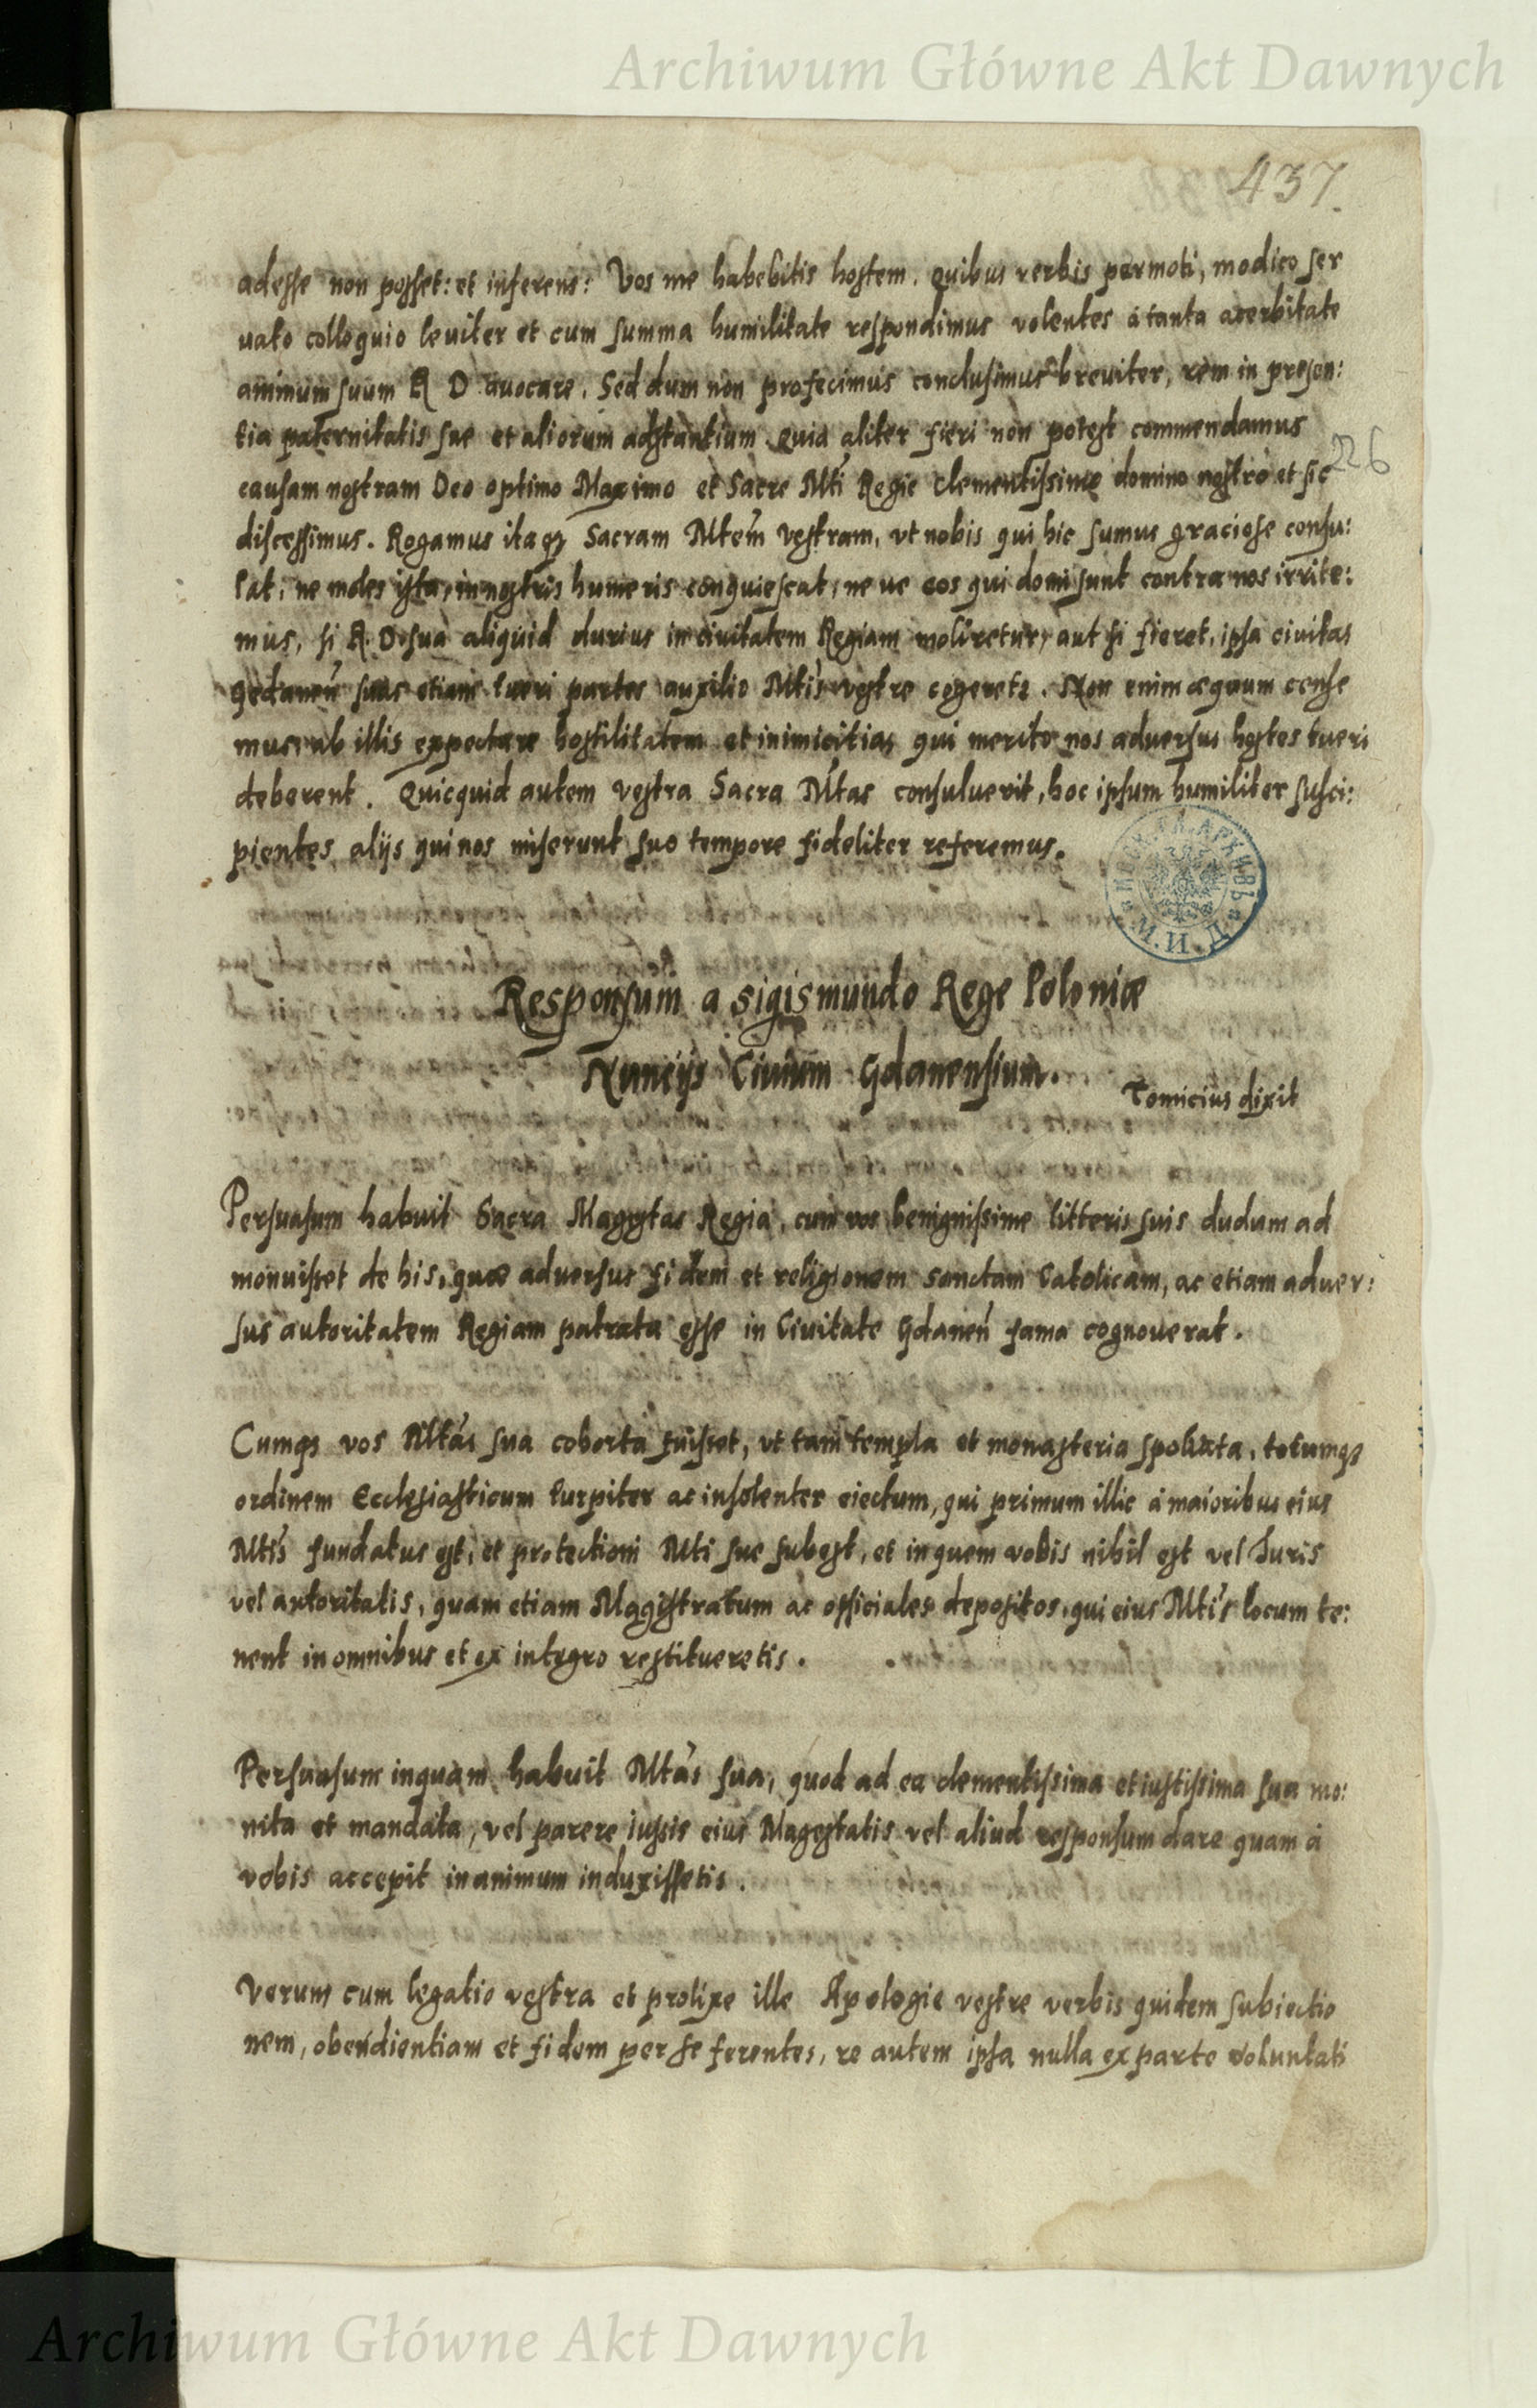 Archiwum Główne Akt Dawnych
437.
adesse non posset: et inferens: Vos me habebitis hostem. quibus verbis permoti, modico ser
uato colloquio leuiter et cum summa humilitate respondimus volentes á tanta acerbitate
animum suum R D auocare. Sed dum non profecimus conclusimus breuiter, rem in presen:
tia paternitatis sue et aliorum adstantium quia aliter fieri non potest commendamus
226
causam nostram Deo optimo Maximo et Sacre Mti Regie clementissimo domino nostro et sic
discessimus. Rogamus itaq3 Sacram Mtem vestram, vt nobis qui hic sumus graciose consu:
lat, ne moles ista, in nostris humeris conquiescat, ne ue eos qui domi sunt contra nos irrite:
mus, si R. D. sua aliquid durius in ciuitatem Regiam moliretur, aut si fieret, ipsa ciuitas
gedaneñ suas etiam tueri partes auxilio Mtis vestre cogeret. Non enim æquum cense
mus ab illis expectare hostilitatem et inimicitias qui merito nos aduersus hostes tueri
deberent. Quicquid autem vestra Sacra Mtas consuluerit, hoc ipsum humiliter susci:
pientes alijs qui nos miserunt suo tempore fideliter referemus.
Responsum a Sigismundo Rege Poloniæ
Nuncijs Ciuium Gdanensium.
Tomicius dixit
Persuasum habuit Sacra Magestas Regia, cum vos benignissime litteris suis dudum ad
monuisset de his, quæ aduersus fidem et religionem sanctam Catolicam, ac etiam aduer:
sus autoritatem Regiam patrata esse in Ciuitate Gdaneñ fama cognouerat.
Cumq3 vos Mtás sua cohorta fuisset, vt tam templa et monasteria spoliata, totumq3
ordinem Ecclesiasticum turpiter ac insolenter eiectum, qui primum illic á maioribus eius
Mtis fundatus est, et protectioni Mti sue subest, et in quem vobis nihil est vel Iuris
vel autoritatis, quam etiam Magistratum ac officiales depositos, qui eius Mtis locum te:
nent in omnibus et ex integro restitueretis.
Persuasum inquam habuit Mtás sua, quod ad ea clementissima et iustissima sua mo:
nita et mandata, vel parere iussis eius Magestatis vel aliud responsum dare quam á
vobis accepit in animum induxissetis.
Verum cum legatio vestra et prolixe ille Apologie vestre verbis quidem subiectio
nem, obendientiam et fidem per se ferentes, re autem ipsa nulla ex parte voluntati
Archiwum Główne Akt Dawnych